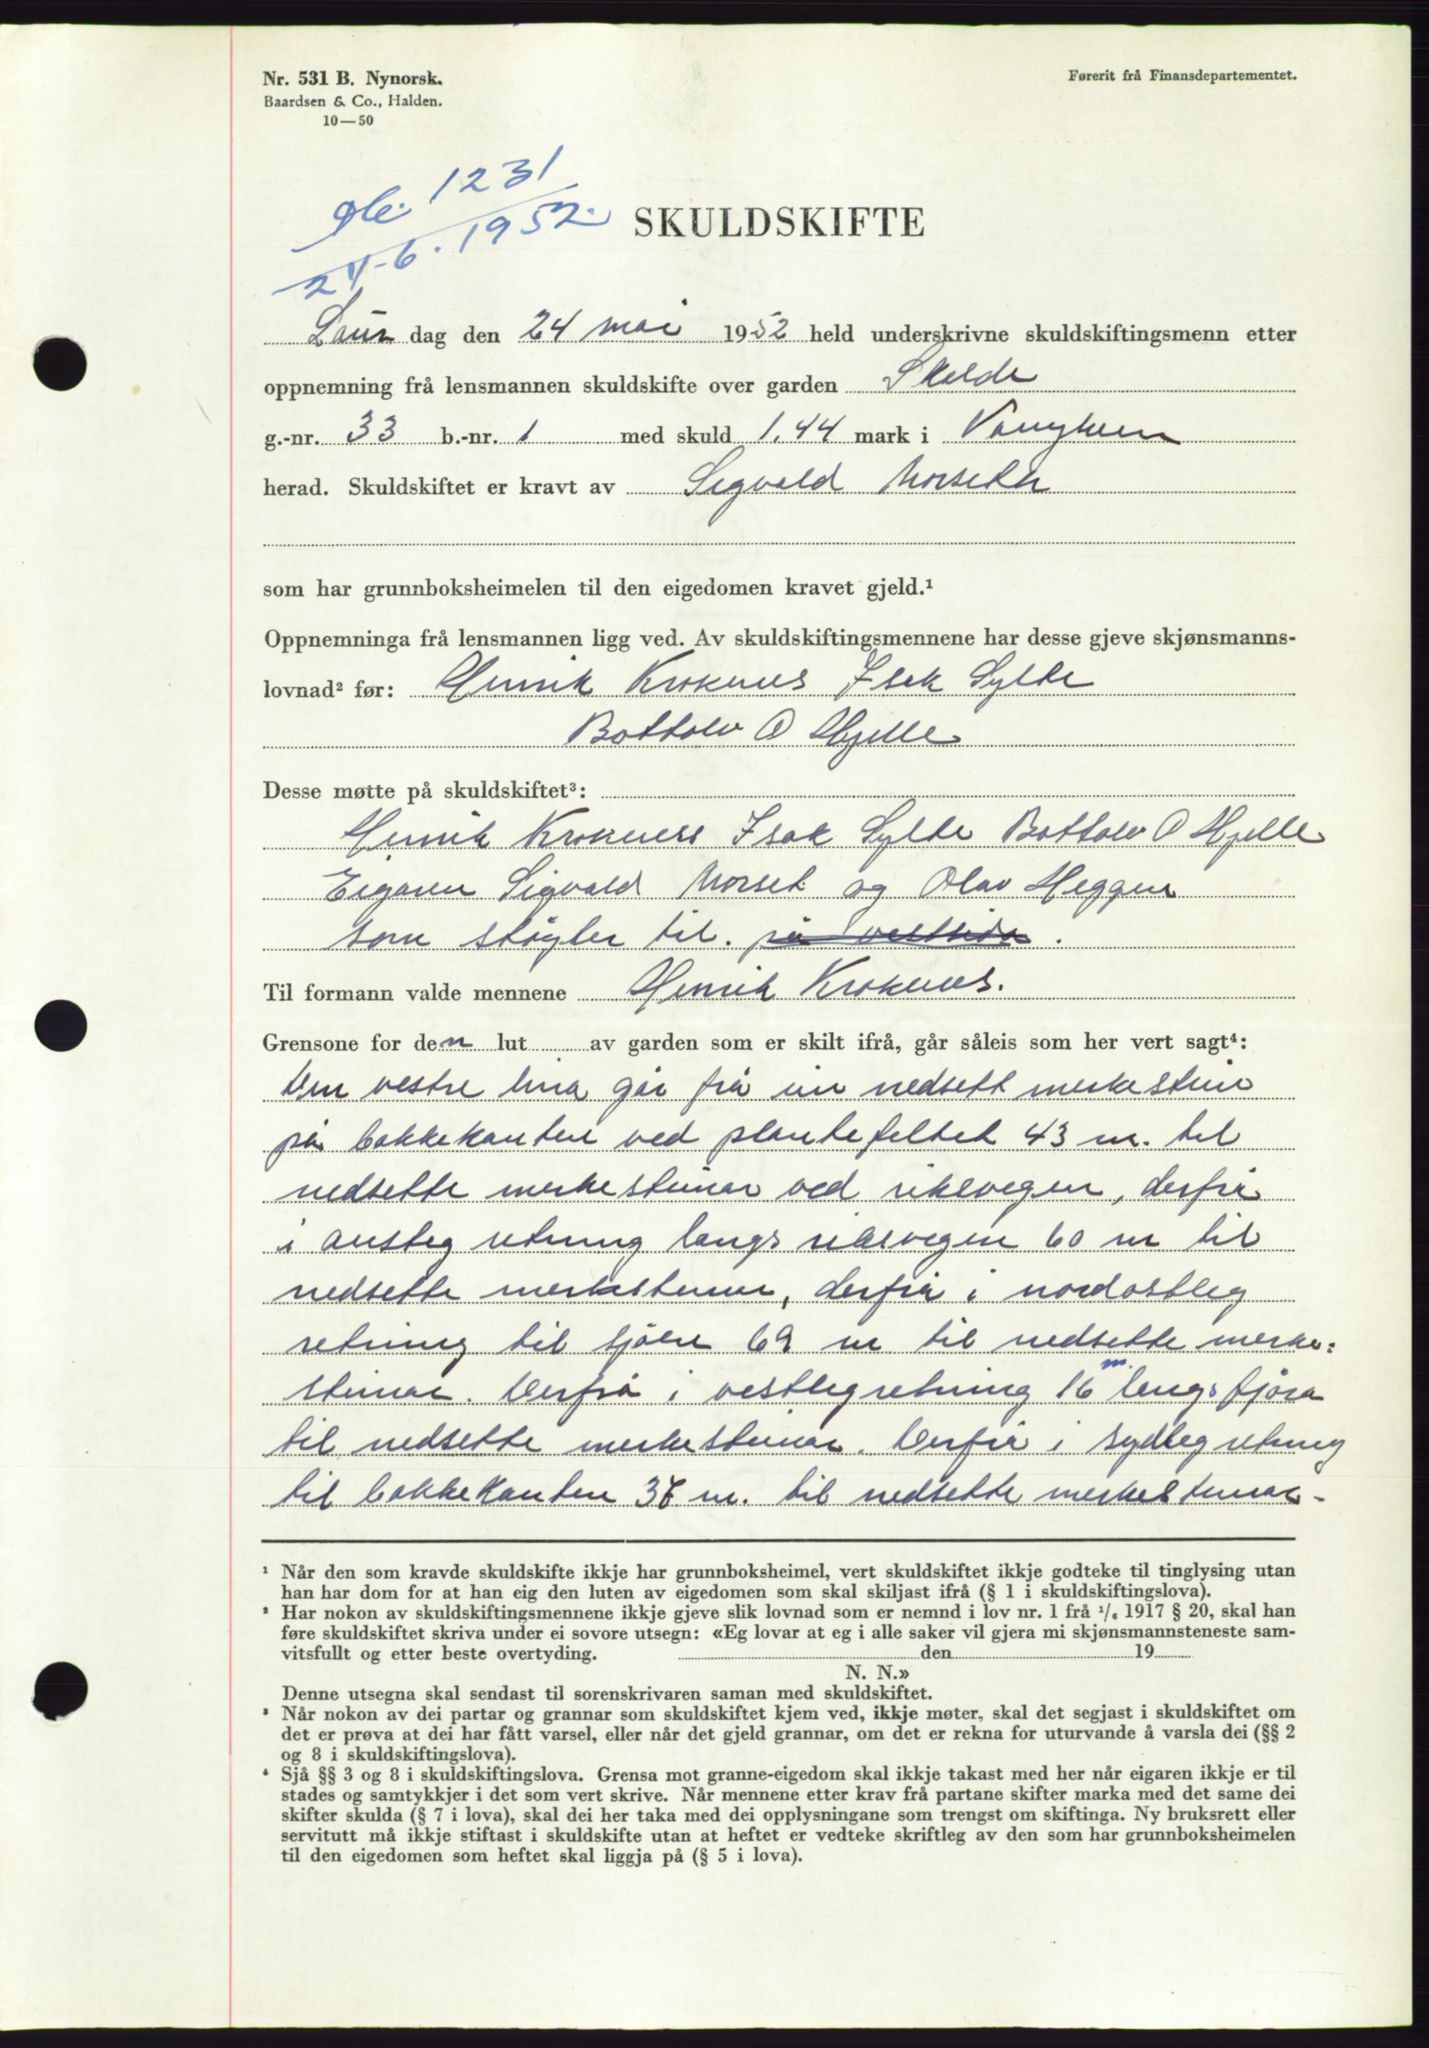 Nr. 531 B. Nynorsk.
Baardsen & Co., Halden.
10—50
Førerit frå Finansdepartementet.
1231
24-6-1952.
SKULDSKIFTE
Laur dag den 24 mai 1952 held underskrivne skuldskiftingsmenn etter
oppnemning frå lensmannen skuldskifte over garden Skelde
g.-nr. 33 b.-nr. 1 med skuld 1,44 mark i Vanylven
herad. Skuldskiftet er kravt av Sigvald Morseth
som har grunnboksheimelen til den eigedomen kravet gjeld.¹
Oppnemninga frå lensmannen ligg ved. Av skuldskiftingsmennene har desse gjeve skjønsmanns-
lovnad² før: Henrik Kroknes Isak Sylte
Bottolv O Hjelle
Desse møtte på skuldskiftet³:
Henrik Kroknes Isak Sylte Bottolv O Hjelle
Eigaren Sigvald Morset og Olav Heggen
som støyter til. på vestsida.
Til formann valde mennene Henrik Kroknes.
Grensone for den lut av garden som er skilt ifrå, går såleis som her vert sagt⁴:
Den vestre lina går frå ein nedsett merkestein
på bakkekanten ved plantefeltet 43 m. til
nedsette merkesteinar ved riksvegen, derfrå
i austleg retning langs riksvegen 60 m til
nedsette merkesteinar, derfrå i nordostleg
retning til sjøen 69 m til nedsette merke:
steinar. Derfrå i vestlegretning 16 m langs fjøra
til nedsette merkesteinar. Derfrå i sydlegretning
til bakkekanten 36 m. til nedsette merkesteinar-
¹ Når den som kravde skuldskifte ikkje har grunnboksheimel, vert skuldskiftet ikkje godteke til tinglysing utan
han har dom for at han eig den luten av eigedomen som skal skiljast ifrå (§ 1 i skuldskiftingslova).
² Har nokon av skuldskiftingsmennene ikkje gjeve slik lovnad som er nemnd i lov nr. 1 frå ¹/₆ 1917 § 20, skal han
føre skuldskiftet skriva under ei sovore utsegn: «Eg lovar at eg i alle saker vil gjera mi skjønsmannsteneste sam-
vitsfullt og etter beste overtyding. den 19
N. N.»
Denne utsegna skal sendast til sorenskrivaren saman med skuldskiftet.
³ Når nokon av dei partar og grannar som skuldskiftet kjem ved, ikkje møter, skal det segjast i skuldskiftet om
det er prøva at dei har fått varsel, eller når det gjeld grannar, om det er rekna for uturvande å varsla dei (§§ 2
og 8 i skuldskiftingslova).
⁴ Sjå §§ 3 og 8 i skuldskiftingslova. Grensa mot granne-eigedom skal ikkje takast med her når eigaren ikkje er til
stades og samtykkjer i det som vert skrive. Når mennene etter krav frå partane skifter marka med det same dei
skifter skulda (§ 7 i lova), skal dei her taka med dei opplysningane som trengst om skiftinga. Ny bruksrett eller
servitutt må ikkje stiftast i skuldskifte utan at heftet er vedteke skriftleg av den som har grunnboksheimelen
til den eigedomen som heftet skal liggja på (§ 5 i lova).